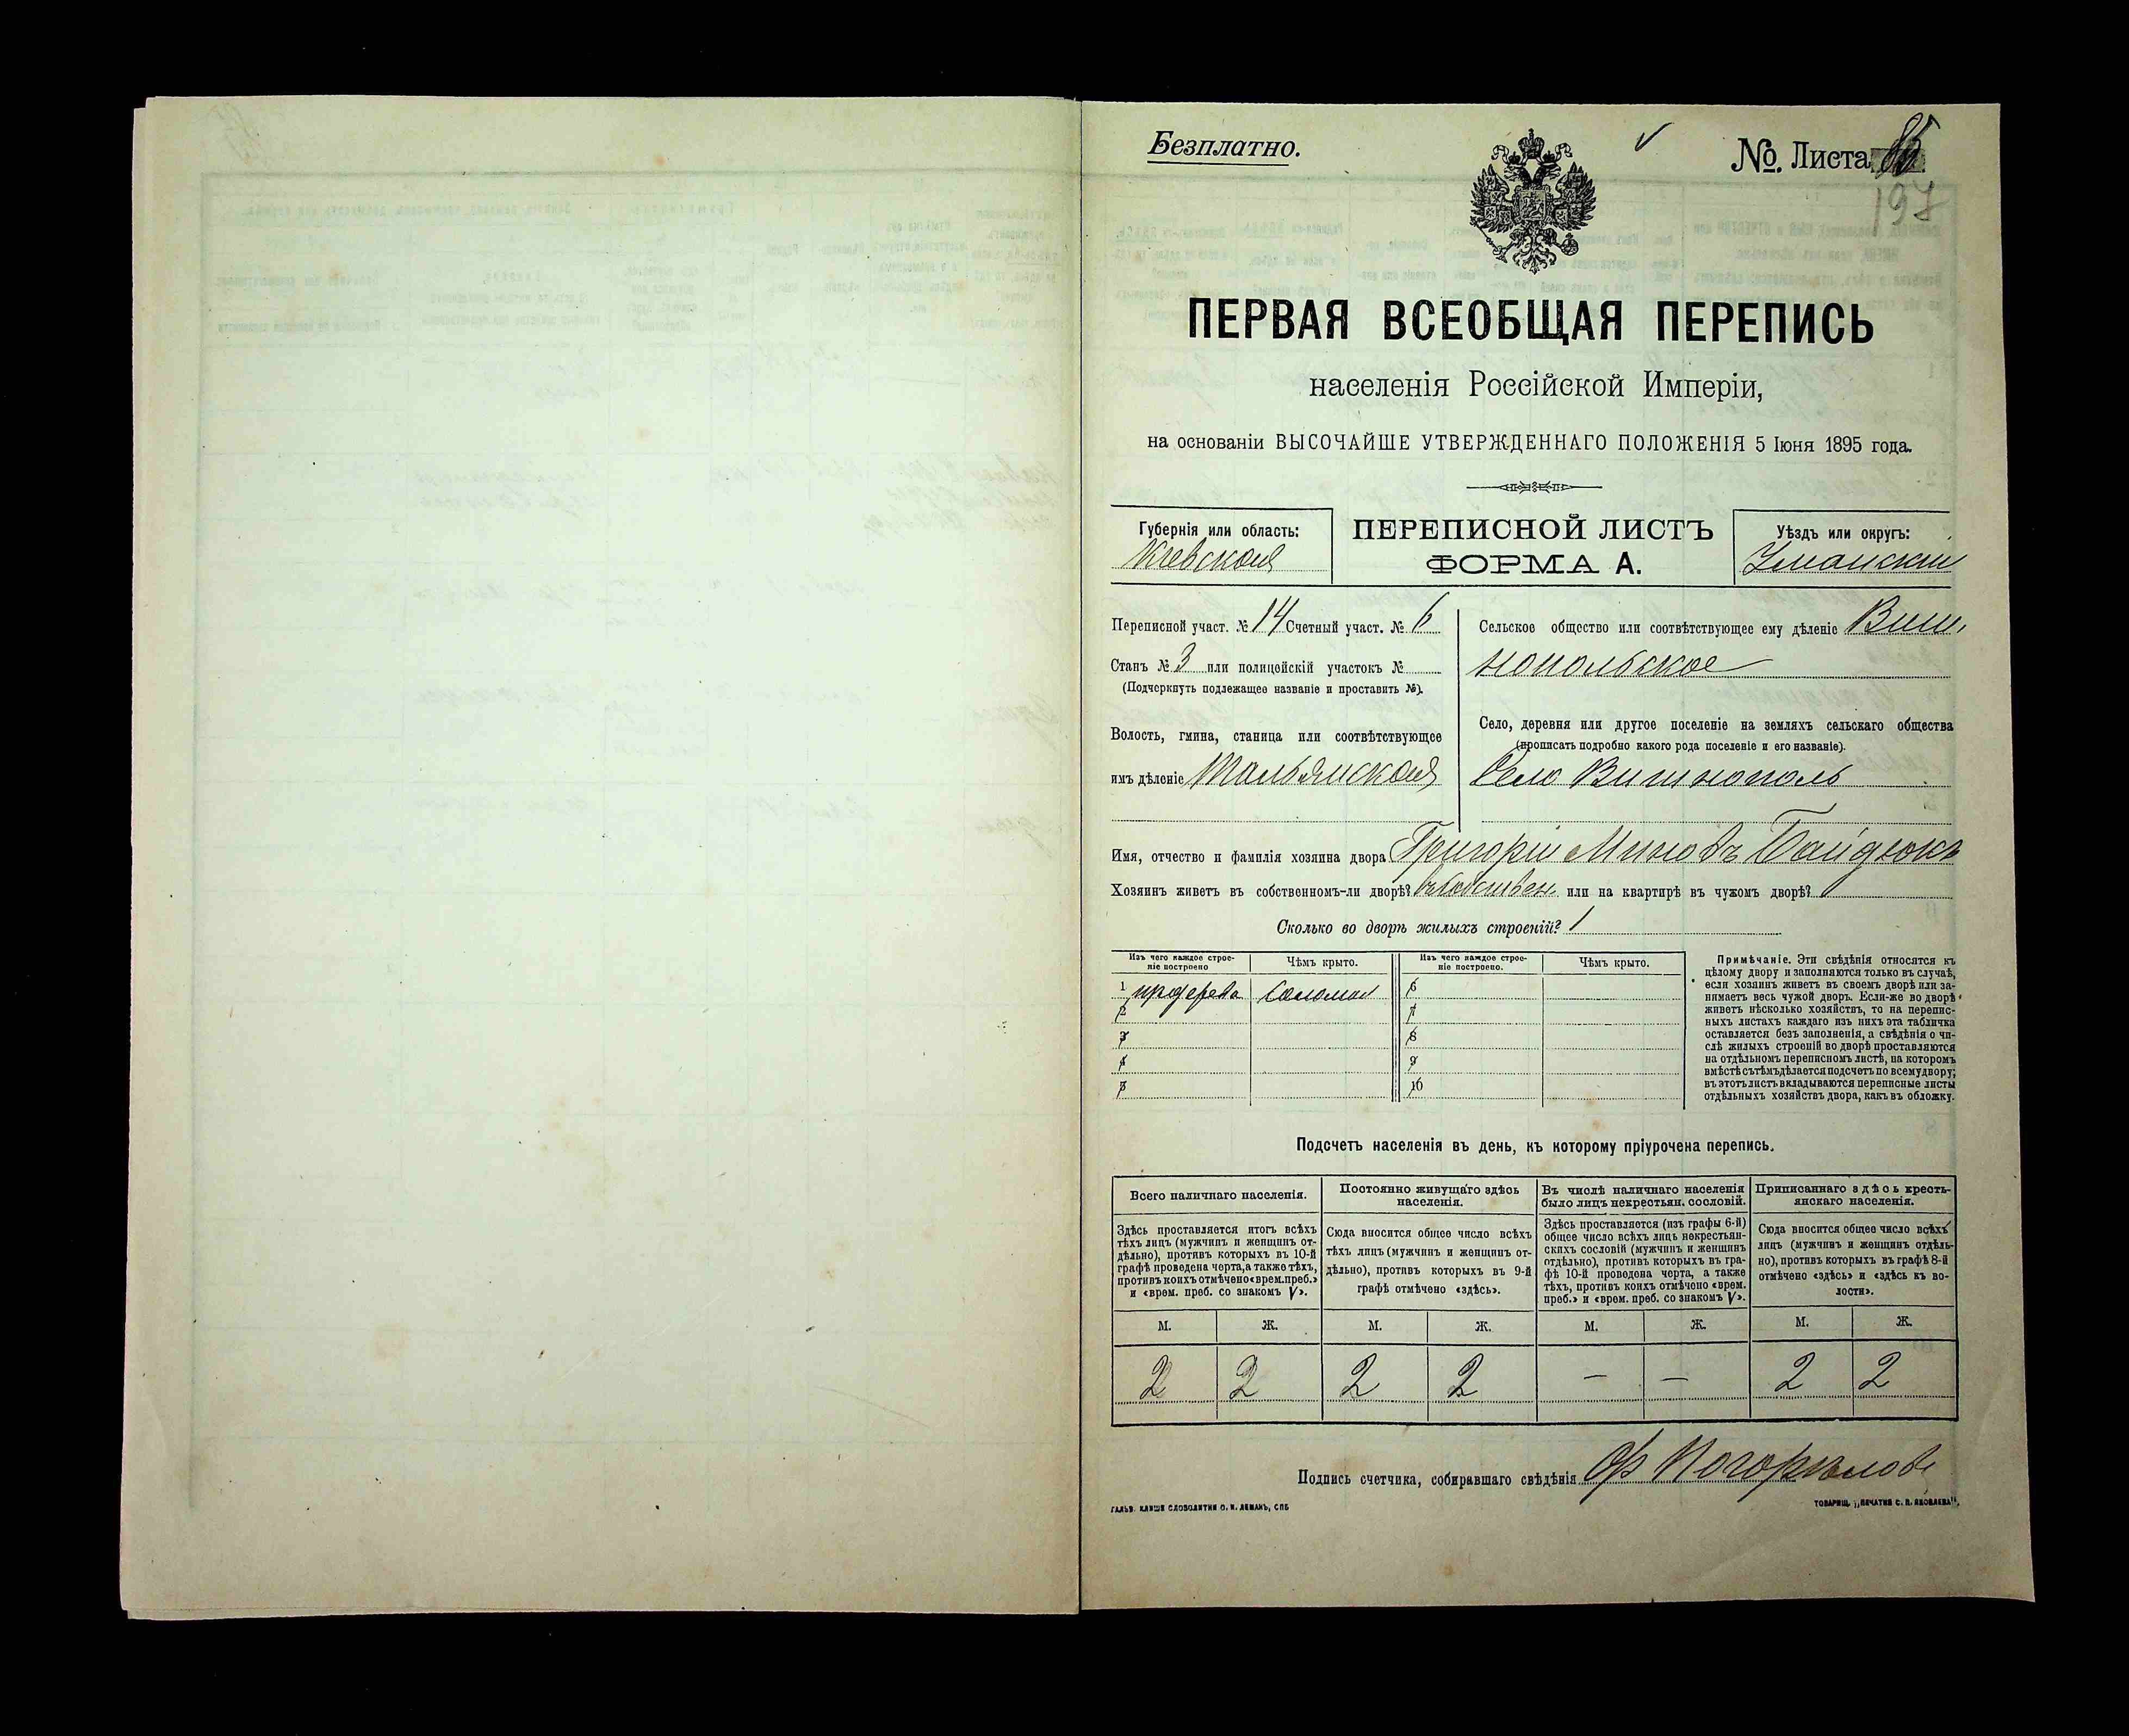 Безплатно.
№. Листа 85
197
ПЕРВАЯ ВСЕОБЩАЯ ПЕРЕПИСЬ
населенія Россійской Имперіи,
на основаніи ВЫСОЧАЙШЕ УТВЕРЖДЕННАГО ПОЛОЖЕНІЯ 5 Іюня 1895 года.
Губернія или область:
Кіевская
ПЕРЕПИСНОЙ ЛИСТЪ
ФОРМА А.
Уѣздъ или округъ:
Уманскій
Переписной участ. № 14 Счетный участ. № 6
Станъ № 3 или полицейскій участокъ №
(Подчеркнуть подлежащее названіе и проставить №).
Волость, гмина, станица или соотвѣтствующее
имъ дѣленіе Тальянская
Сельское общество или соотвѣтствующее ему дѣленіе Виш,
нопольское
Село, деревня или другое поселеніе на земляхъ сельскаго общества
(прописать подробно какого рода поселеніе и его названіе).
Село Вишнополь
Имя, отчество и фамилія хозяина двора Григорій Миновъ Байдюкъ
Хозяинъ живетъ въ собственномъ-ли дворѣ? въ собствен. или на квартирѣ въ чужомъ дворѣ?
Сколько во дворѣ жилыхъ строеній? 1
Изъ чего каждое строе-
ніе построено
Чѣмъ крыто.
Изъ чего каждое строе-
ніе построено.
Чѣмъ крыто.
1 изъ дерева соломой 6
2 7
3 8
4 9
5 10
Примѣчаніе. Эти свѣдѣнія относятся къ
цѣлому двору и заполняются только въ случаѣ,
если хозяинъ живетъ въ своемъ дворѣ или за-
нимаетъ весь чужой дворъ. Если-же во дворѣ
живетъ нѣсколько хозяйствъ, то на перепис-
ныхъ листахъ каждаго изъ нихъ эта табличка
оставляется безъ заполненія, а свѣдѣнія о чи-
слѣ жилыхъ строеній во дворѣ проставляются
на отдѣльномъ переписномъ листѣ, на которомъ
вмѣстѣ съ тѣмъ дѣлается подсчетъ по всему двору;
въ этотъ листъ вкладываются переписные листы
отдѣльныхъ хозяйствъ двора, какъ въ обложку.
Подсчетъ населенія въ день, къ которому пріурочена перепись.
Всего наличнаго населенія.
Здѣсь проставляется итогъ всѣхъ
тѣхъ лицъ (мужчинъ и женщинъ от-
дѣльно), противъ которыхъ въ 10-й
графѣ проведена черта, а также тѣхъ,
противъ коихъ отмѣчено «врем. преб.»
и «врем. преб. со знакомъ V».
Постоянно живущаго здѣсь
населенія.
Сюда вносится общее число всѣхъ
тѣхъ лицъ (мужчинъ и женщинъ от-
дѣльно), противъ которыхъ въ 9-й
графѣ отмѣчено «здѣсь».
Въ числѣ наличнаго населенія
было лицъ некрестьян. сословій.
Здѣсь проставляется (изъ графы 6-й)
общее число всѣхъ лицъ некрестьян-
скихъ сословій (мужчинъ и женщинъ
отдѣльно), противъ которыхъ въ гра-
фѣ 10-й проведена черта, а также
тѣхъ, противъ коихъ отмѣчено «врем.
преб.» и «врем. преб. со знакомъ V».
Приписаннаго здѣсь кресть-
янскаго населенія.
Сюда вносится общее число всѣхъ
лицъ (мужчинъ и женщинъ отдѣль-
но), противъ которыхъ въ графѣ 8-й
отмѣчено «здѣсь» и «здѣсь къ во-
лости».
М. Ж. М. Ж. М. Ж. М. Ж.
2 2 2 2 — — 2 2
Подпись счетчика, собиравшаго свѣдѣнія Погорѣловъ
ГАЛЬВ. КЛИШЕ СЛОВОЛИТНИ О. И. ЛЕМАНЪ, СПБ
ТОВАРИЩ. „ПЕЧАТНЯ С. П. ЯКОВЛЕВА“.